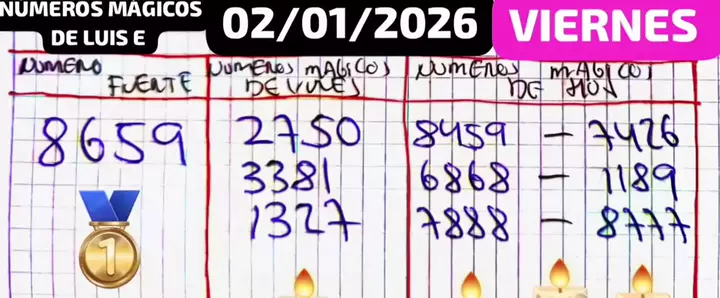 NUMEROS MÁGICOS
DE LUIS E
02/01/2026
VIERNES
NUMERO
FUENTE
NUMEROS MAGICOS
DE
NUMEROS MAGICOS
DE
8659
2750
3381
1327
8459 - 7426
6868 - 1189
7888 - 8777
1